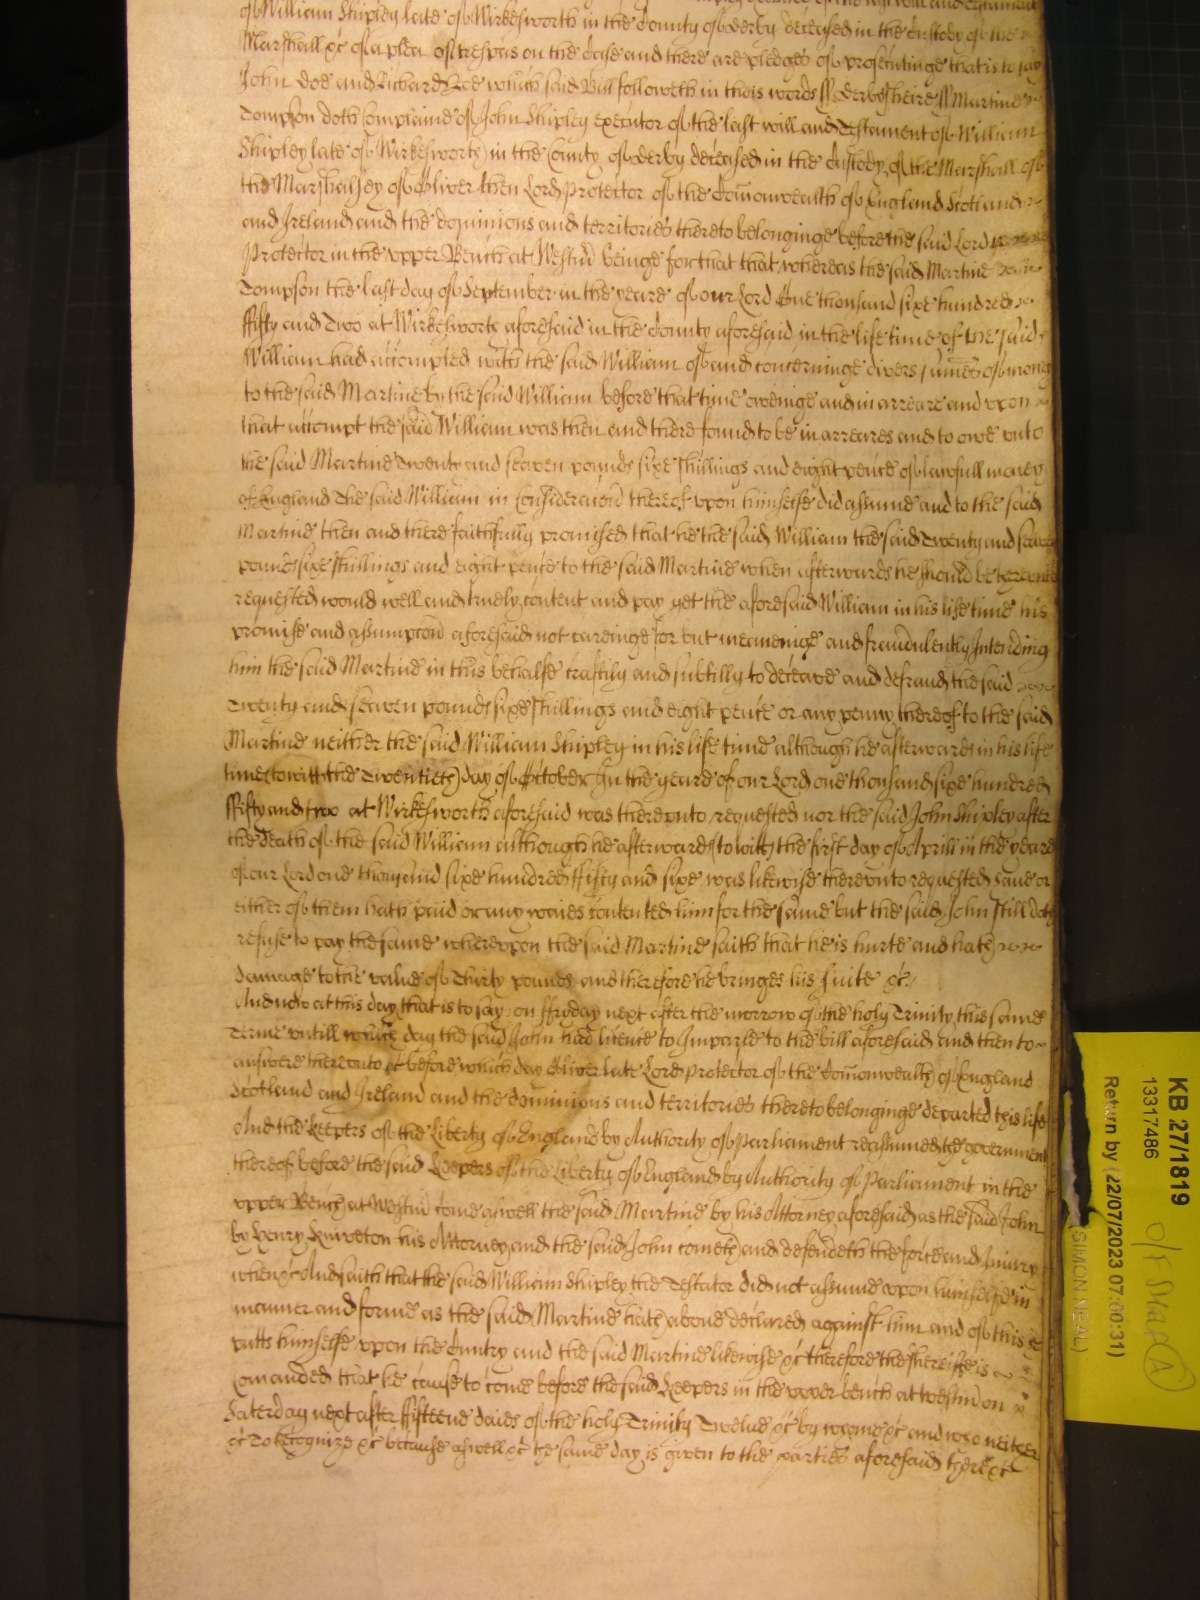 of William Shipley late of Wirkesworth in the County of derby deceased in the Custody of the
Marshall &c of a plea of trespas on the Case and there are pledges of prosecutinge that is to say
John Doe and Richard Roe which said Bill followeth in theis words ss derbysheire ss Martine
Tompson doth Complaine of John Shipley executor of the last will and Testament of William
Shipley late of Wirkesworth in the County of derby deceased in the Custody of the Marshall of
the Marshalsey of Oliver then Lord Protector of the Com̄onwealth of England Scotland
and Ireland and the dominions and territories thereto belonginge before the said Lord
Protector in the upper Bench at Westm̄ beinge for that that whereas the said Martine
Tompson the last day of September in the yeare of our Lord One thousand sixe hundred
ffifty and Two at Wirkesworth aforesaid in the County aforesaid in the life time of the said
William had accompted with the said William of and concerninge divers sum̄es of money
to the said Martine by the said William before that time oweinge and in arreare and vpon
that accompt the said William was then and there found to be in arreares and to owe vnto
the said Martine Twenty and seaven pounds sixe shillings and eight pence of lawfull money
of England The said William in Consideracōn thereof vpon himselfe did assume and to the said
Martine then and there faithfully promised that he the said William the said Twenty and seaven
pounds sixe shillings and eight pence to the said Martine when afterwards he should be therevnto
requested would well and truely content and pay yet the aforesaid William in his life time his
promise and assumpcōn aforesaid not careinge for but meaneinge and fraudulently Intending
him the said Martine in this behalfe craftily and subtilly to deceave and defraud the said
Twenty and seaven pounds sixe shillings and eight pence or any penny thereof to the said
Martine neither the said William Shipley in his life time although he afterwards in his life
time (to witt) the Twentieth day of October In the yeare of our Lord one thousand sixe hundred
ffifty and two at Wirkesworth aforesaid was therevnto requested nor the said John Shipley after
the death of the said William although he afterwards (to witt) the first day of Aprill in the yeare
of our Lord one thousand sixe hundred ffifty and sixe was likewise therevnto requested same or
either of them hath paid or any waies contented him for the same but the said John still doth
refuse to pay the same wherevpon the said Martine saith that he is hurte and hath
damage to the value of Thirty pounds and therefore he bringes his suite &c
And now at this day that is to say on ffryday next after the morrow of the holy Trinity this same
Terme vntill which day the said John had licence to Imparle to the bill aforesaid and then to
answere therevnto &c before which day Oliver late Lord Protector of the Com̄onwealth of England
Scotland and Ireland and the dominions and territories thereto belonginge departed this life
And the Keepers of the Liberty of England by Authority of Parliament reassumed the government
thereof before the said Keepers of the Liberty of England by Authority of Parliament in the
vpper Bench at Westm̄ come aswell the said Martine by his Attorney aforesaid as the said John
by Henry Kniveton his Attorney and the said John cometh and defendeth the force and Iniury
when &c And saith that the said William Shipley the Testator did not assume vpon himselfe in
manner and forme as the said Martine hath above declared against him and of this he
putts himselfe vpon the Cuntry and the said Martine likewise &c therefore the sheriffe is
Com̄anded that he cause to come before the said Keepers in the vpper bench at westm̄ on
Saterday next after ffifteene daies of the holy Trinity Twelve &c by whome &c and who neither
&c To Recognize &c because aswell &c the same day is given to the parties aforesaid there &c
KB 27/1819
13317486
Return by (22/07/2023 07:00:31)
SIMON NEAL)
O/F Staf A